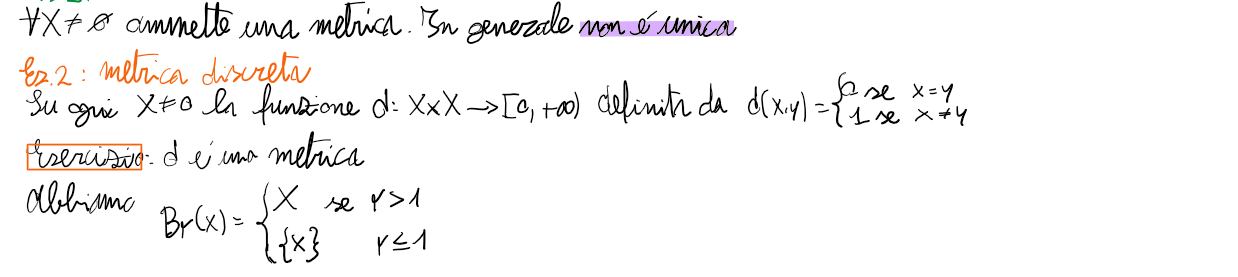 ∀X≠∅ ammette una metrica. In generale non é unica
Es.2: metrica discreta
Su ogni X≠∅ la funzione d: X×X→[0,+∞) definita da d(x,y)={0 se x=y
1 se x≠y
Esercizio: d é una metrica
Abbiamo Br(x)={X se r>1
{x} r≤1